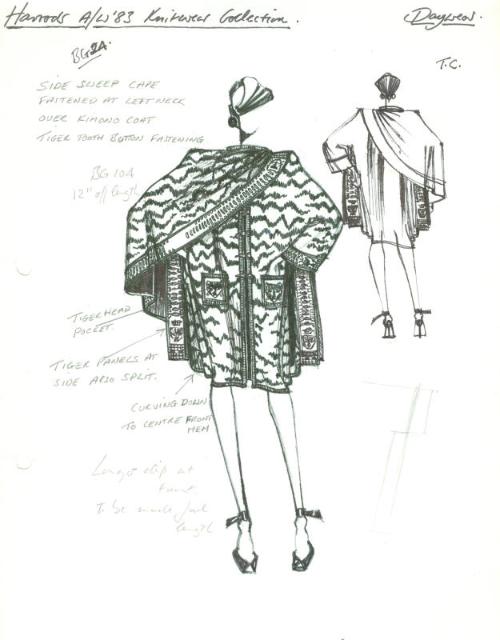 Harrods A/W '83 Knitwear Collection.
Daywear.
BG2A.
T.C.
SIDE SWEEP CAPE
FASTENED AT LEFT NECK
OVER KIMONO COAT
TIGER TOOTH BUTTON FASTENING
BG 10A
12" off length
TIGERHEAD
POCKET.
TIGER PANELS AT
SIDE ALSO SPLIT.
CURVING DOWN
TO CENTRE FRONT
HEM
at
To be made
length